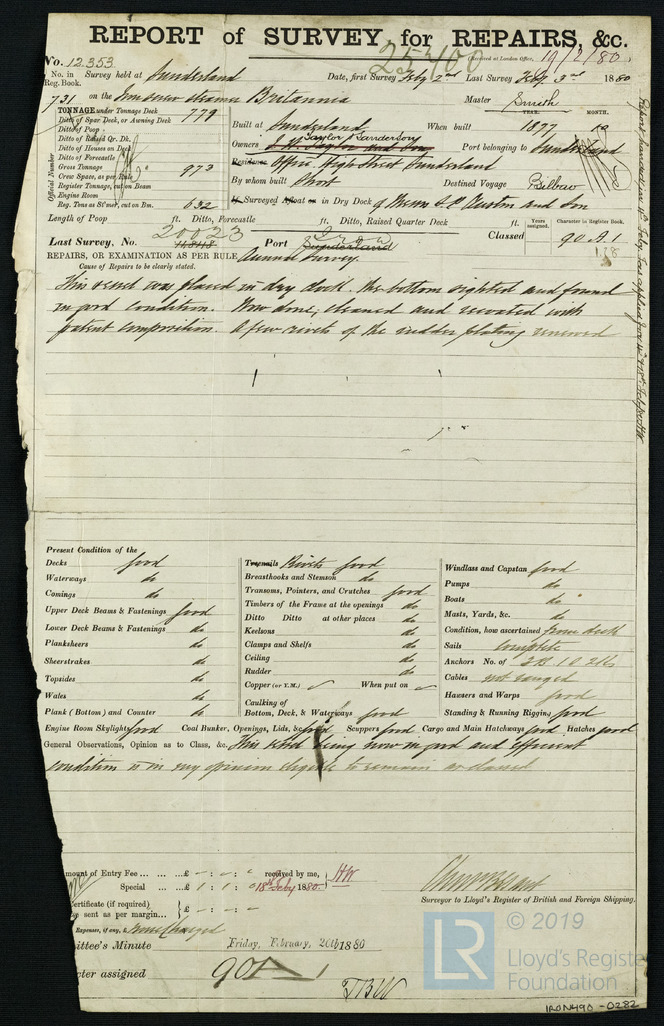 REPORT of SURVEY for REPAIRS, &c.
No. 12353
25400
(Received at London Office, 19/2/80)
No. in Reg. Book. Survey held at Sunderland Date, first Survey Feby 2nd Last Survey Feby 3rd 1880
731 on the Iron screw steamer Britannia Master Smith
TONNAGE under Tonnage Deck 779
Ditto of Spar Deck, or Awning Deck
Ditto of Poop
Ditto of Raised Qr. Dk.
Ditto of Houses on Deck
Ditto of Forecastle
Gross Tonnage 973
Crew Space, as per Rule
Register Tonnage, cut on Beam
Engine Room
Reg. Tons as St'mer, cut on Bm. 632
Official Number
YEAR. MONTH.
Built at Sunderland When built 1877 10
Taylor & Sanderson
Owners J. H. Taylor and Son Port belonging to Sunderland
Residence Office High Street Sunderland
By whom built Short Destined Voyage Bilbao
If Surveyed Afloat or in Dry Dock of Messrs S. P. Austin and Son
Length of Poop ft. Ditto, Forecastle ft. Ditto, Raised Quarter Deck ft.
Years assigned. Character in Register Book.
Classed 90 A.1
1.78
20023
Last Survey, No. 14848 Port Sunderland
REPAIRS, OR EXAMINATION AS PER RULE Annual Survey.
Cause of Repairs to be clearly stated.
This vessel was placed in dry dock. the bottom sighted and found
in good condition. Now done; cleaned and recoated with
patent composition. A few rivets of the rudder plating renewed
Present Condition of the
Decks good
Waterways do
Comings do
Upper Deck Beams & Fastenings good
Lower Deck Beams & Fastenings do
Planksheers do
Sheerstrakes do
Topsides do
Wales do
Plank (Bottom) and Counter do
Treenails Rivets good
Breasthooks and Stemson do
Transoms, Pointers, and Crutches good
Timbers of the Frame at the openings do
Ditto Ditto at other places do
Keelsons do
Clamps and Shelfs do
Ceiling do
Rudder do
Copper (or Y.M.) ✓ When put on ✓
Caulking of
Bottom, Deck, & Waterways good
Windlass and Capstan good
Pumps do
Boats do
Masts, Yards, &c. do
Condition, how ascertained from deck
Sails complete
Anchors No. of 3B. 1S. 2Ks
Cables not ranged
Hawsers and Warps good
Standing & Running Rigging good
Engine Room Skylights good Coal Bunker, Openings, Lids, &c. good Scuppers good Cargo and Main Hatchways good Hatches good
General Observations, Opinion as to Class, &c. This vessel being now in good and efficient
condition is in my opinion eligible to remain as classed
mount of Entry Fee ... ... ... £ - : - : received by me, HW
Special ... £ 1 : 1 : 0 18th Feby 1880
ertificate (if required)
e sent as per margin... } £ - : - :
Expenses, if any, £ None Charged
Surveyor to Lloyd's Register of British and Foreign Shipping.
ittee's Minute Friday, February, 20th 1880
cter assigned 90A 1
TBW
© 2019
LR
Lloyd's Registe
Foundation
IRON490-0282